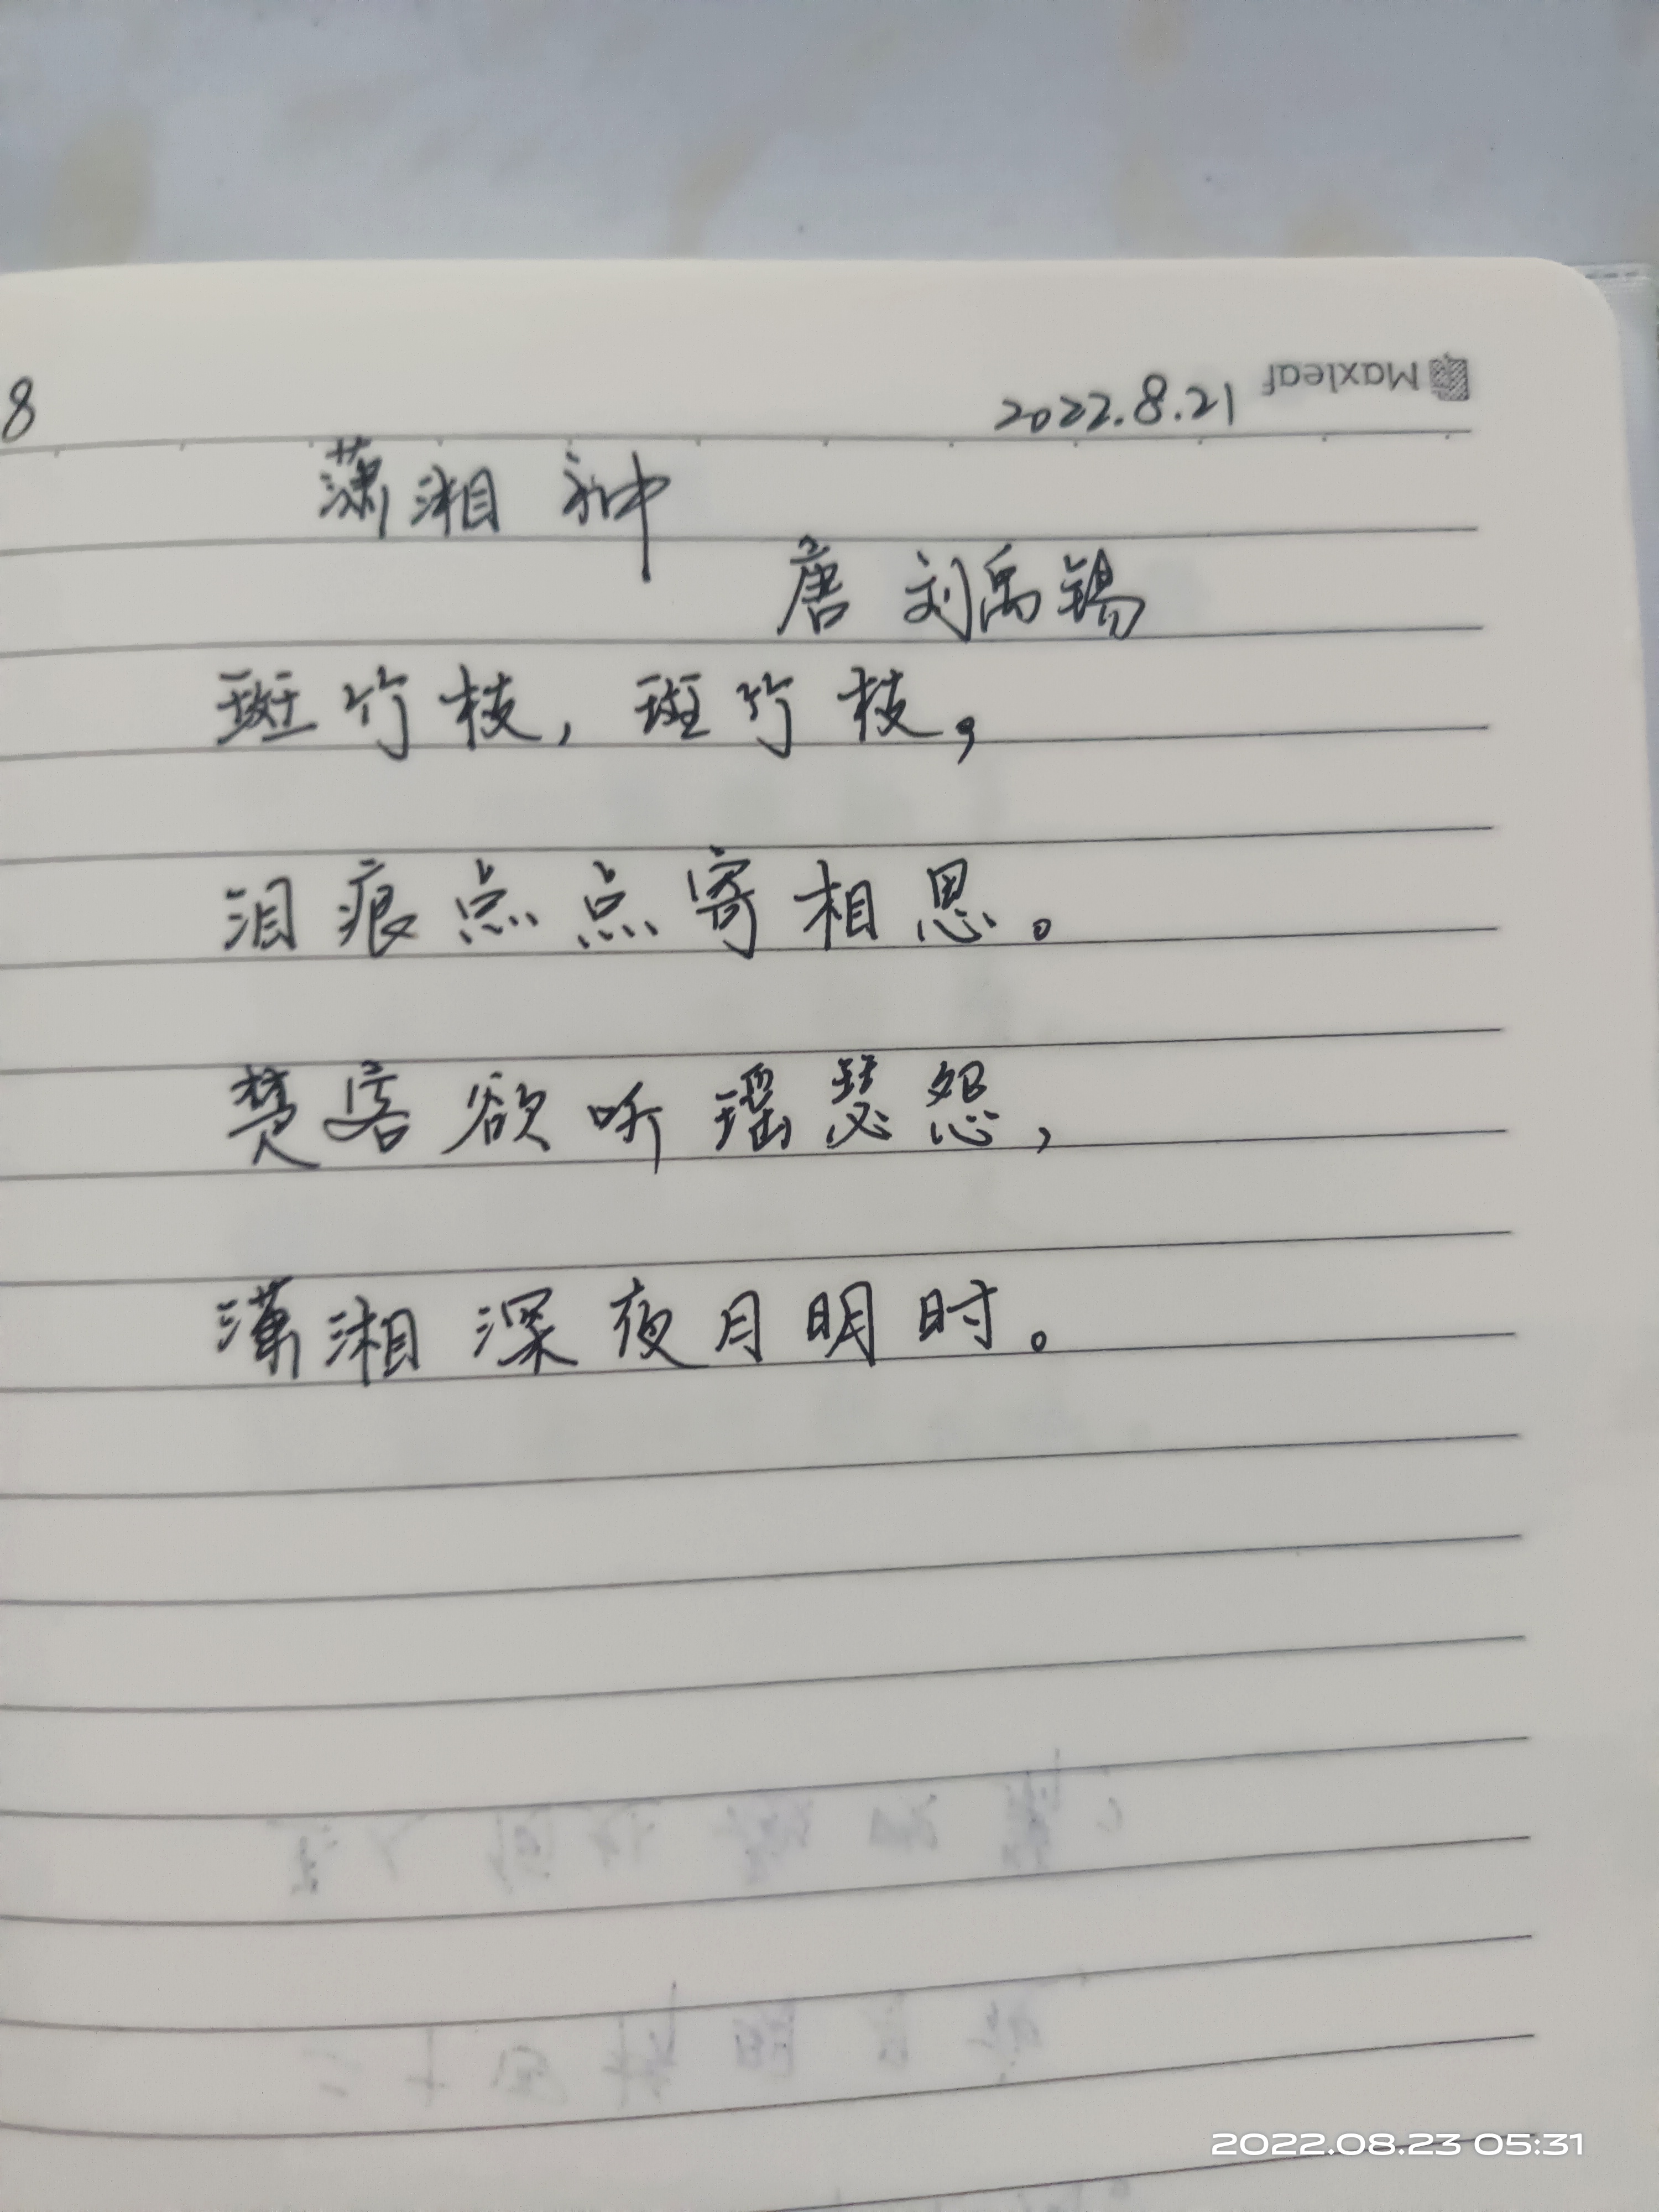 8
2022.8.21 Maxleaf
潇湘神
唐 刘禹锡
斑竹枝，斑竹枝，
泪痕点点寄相思。
楚客欲听瑶瑟怨，
潇湘深夜月明时。
2022.08.23 05:31